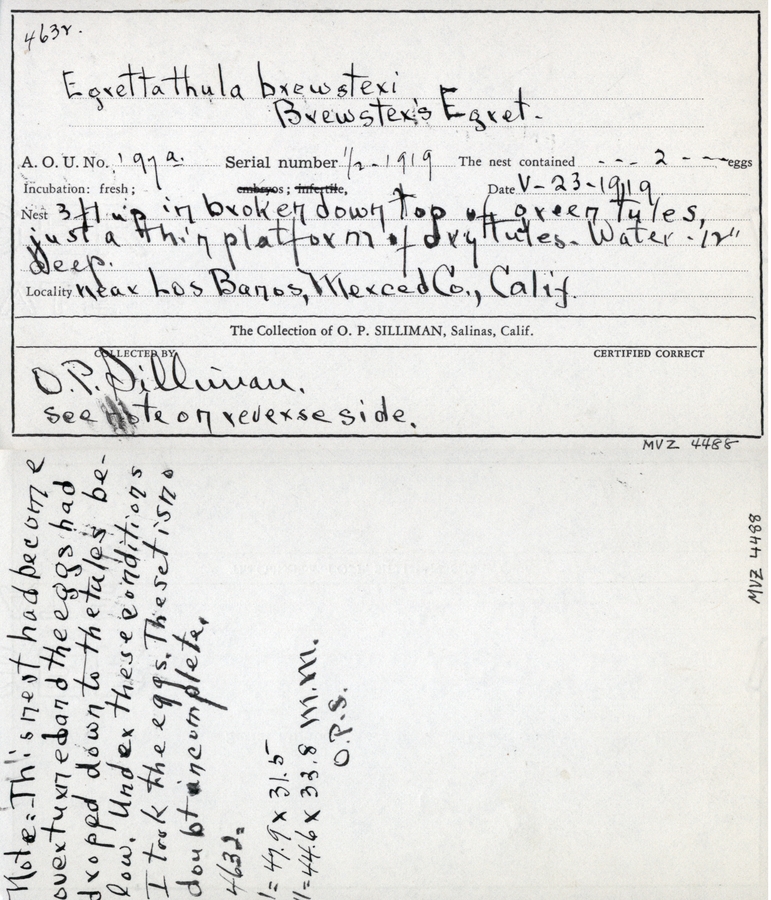 4632.
Egretta thula brewsteri
Brewster's Egret.
A. O. U. No. 197a. Serial number 1/2-1919 The nest contained --- 2 --- eggs
Incubation: fresh; embryos; infertile, Date V-23-1919
Nest 3 ft up in broken down top of green tules,
just a thin platform of dry tules. Water -12"
deep.
Locality near Los Banos, Merced Co., Calif.
The Collection of O. P. SILLIMAN, Salinas, Calif.
COLLECTED BY CERTIFIED CORRECT
O.P. Silliman.
see note on reverse side.
MVZ 4488
Note:- This nest had become
overturned and the eggs had
dropped down to the tules be-
low. Under these conditions
I took the eggs. The set is no
doubt incomplete.
4632=
1=47.9 x 31.5
1=44.6 x 33.8 m.m.
O.P.S.
MVZ 4488